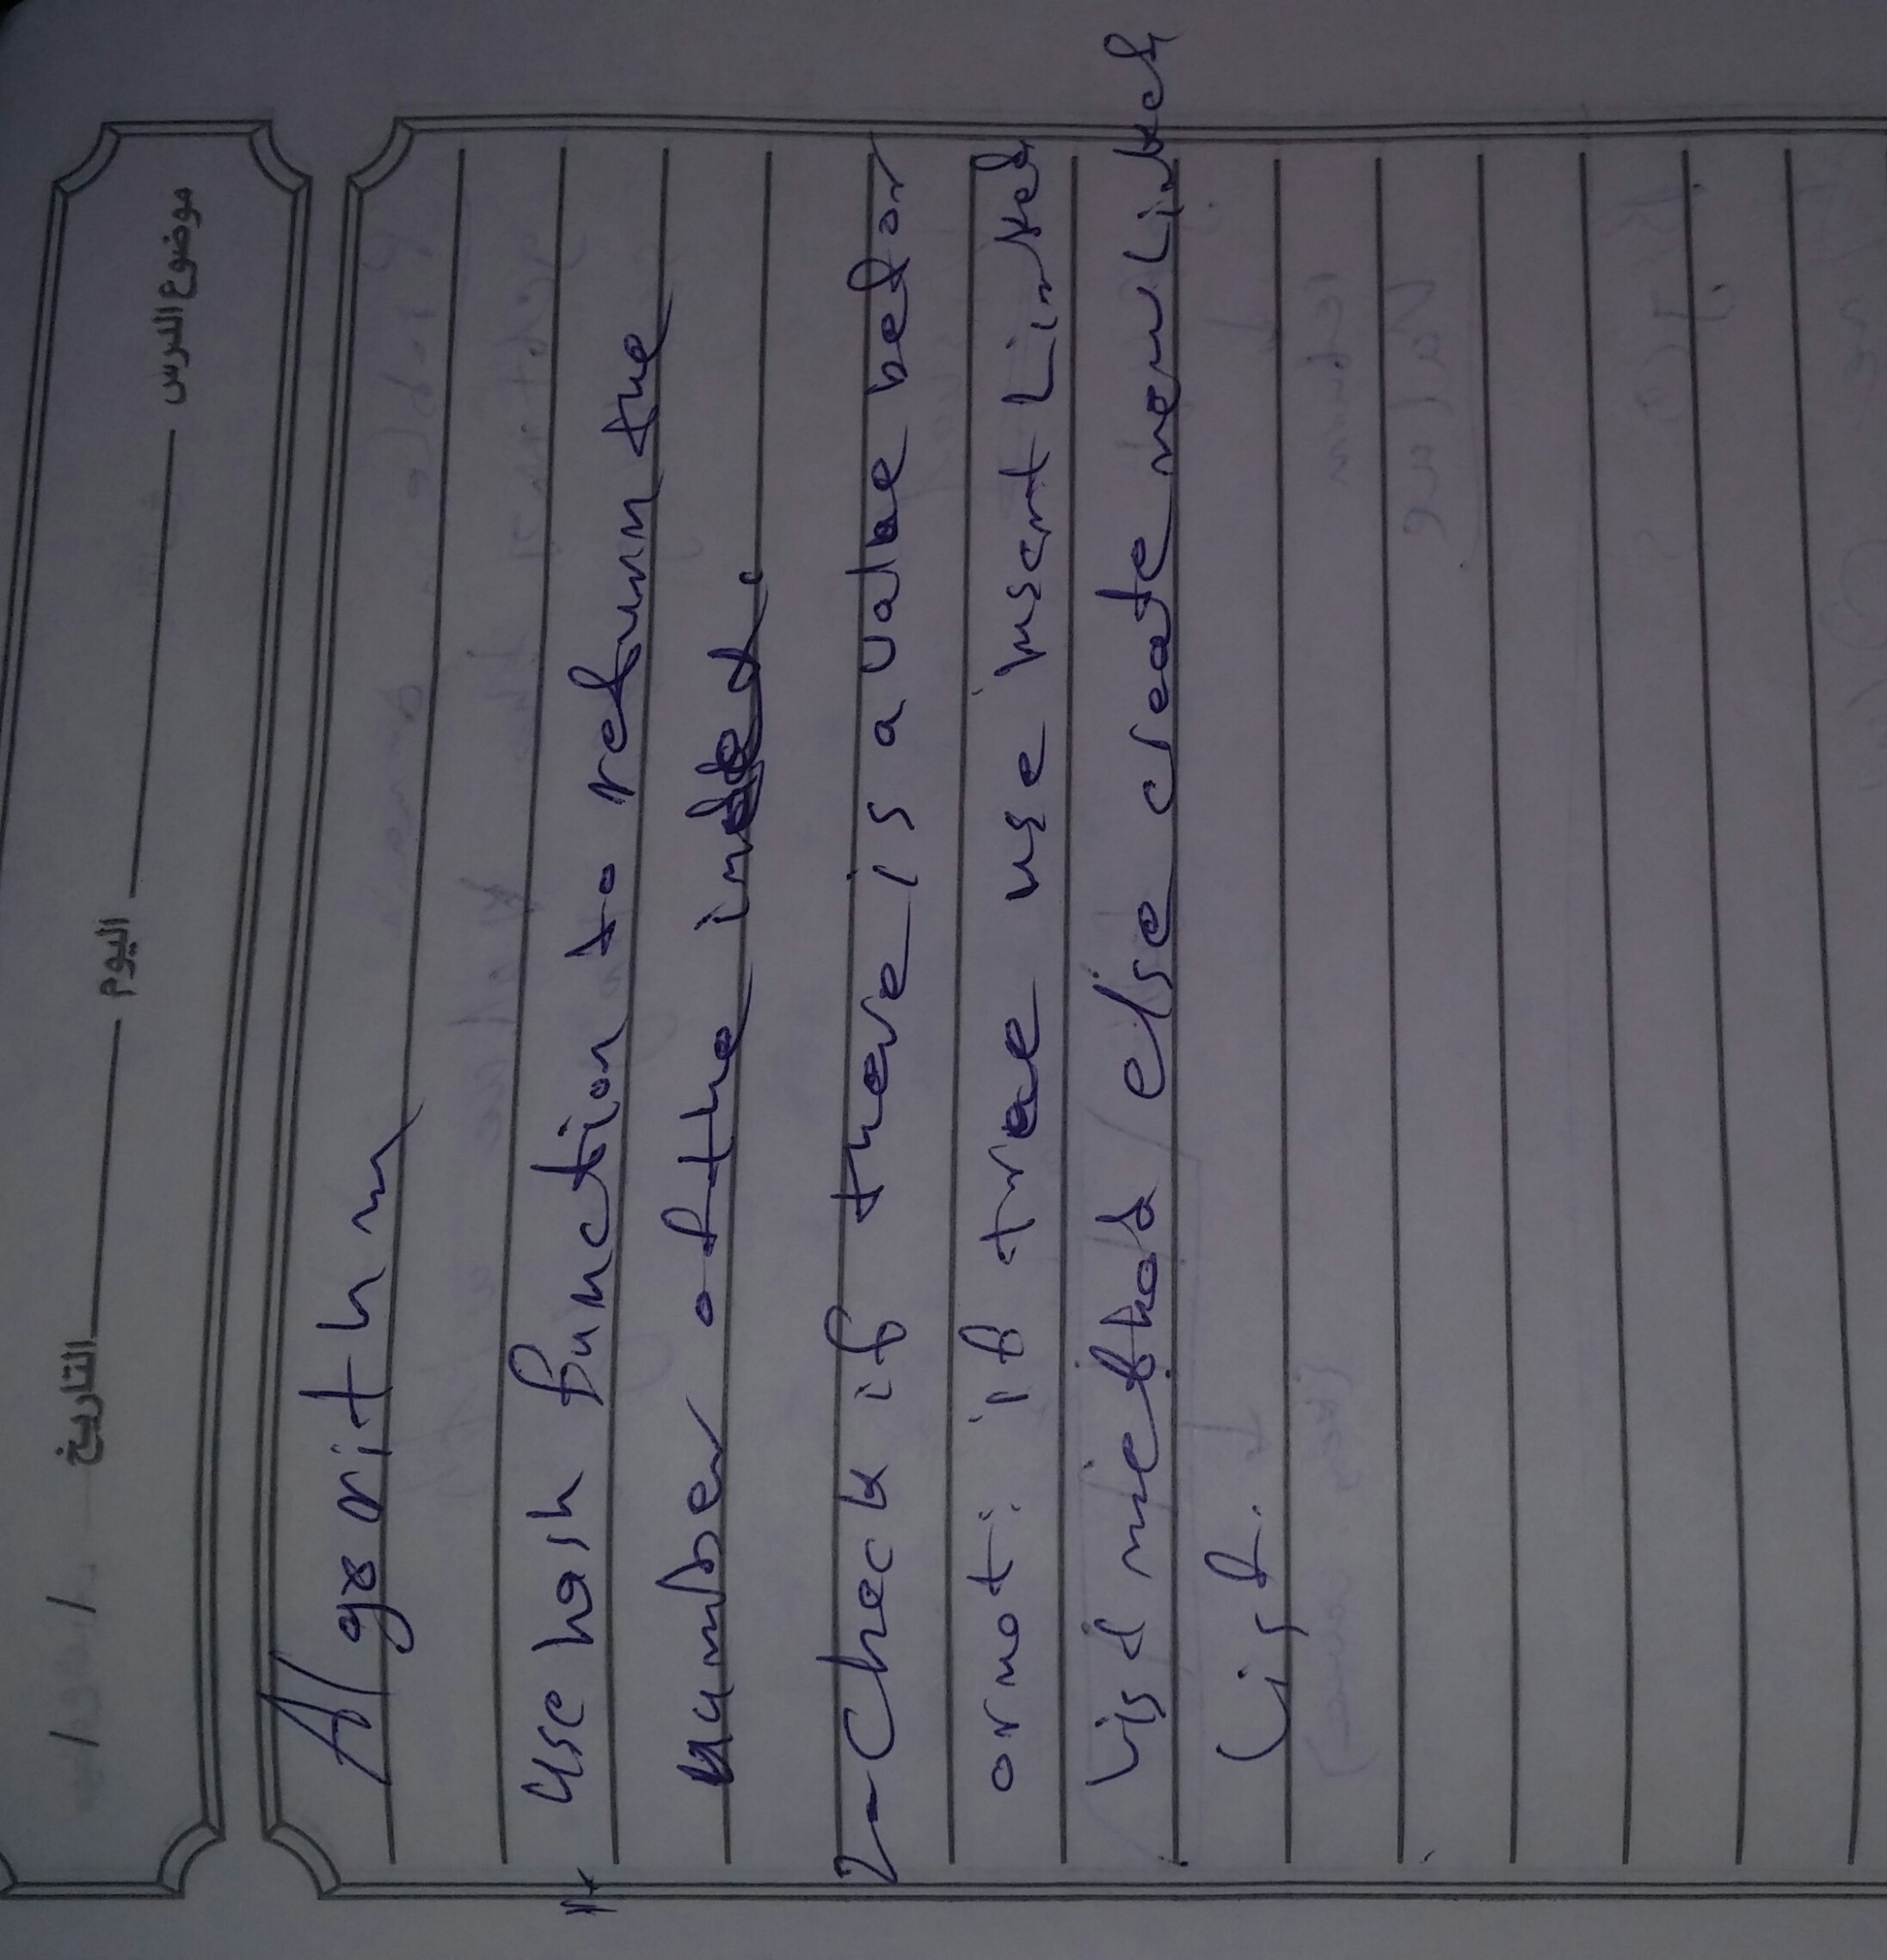 موضوع الدرس
اليوم
التاريخ / /
Algorithm
use hash function to return the
number of the index.
2- Check if there is a value befor
or not. if true use insert Linked
list method / else create new Linked
list.